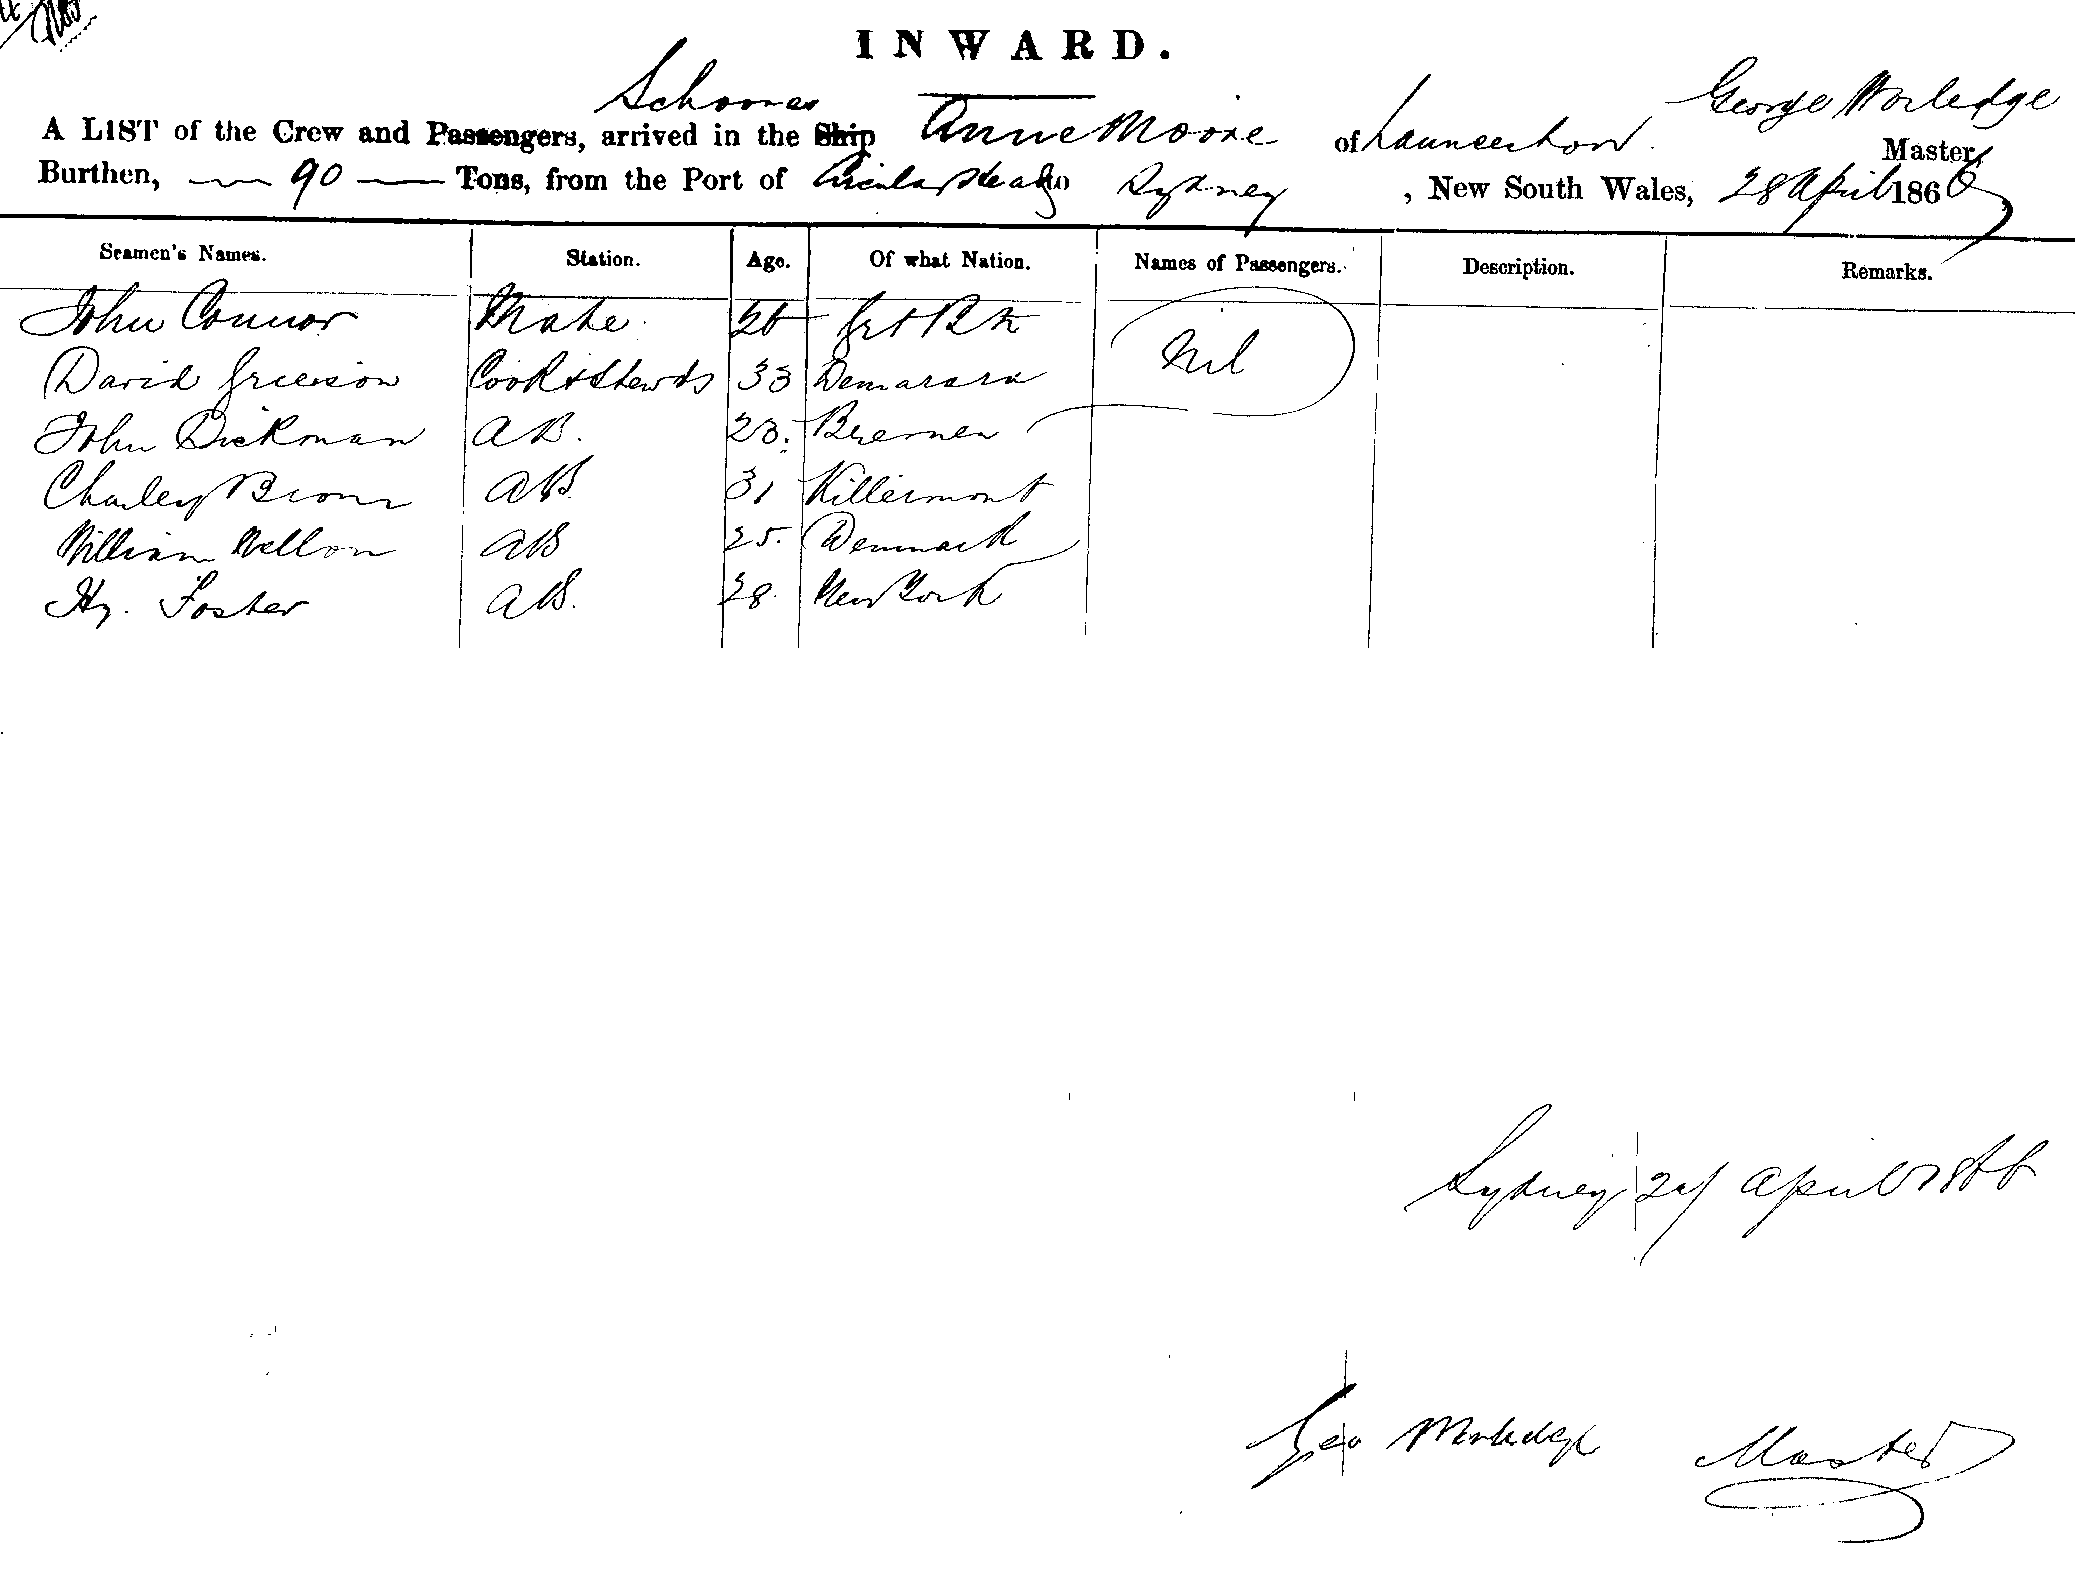 INWARD.
Schooner George Worledge
A LIST of the Crew and Passengers, arrived in the Ship Anne Moore of Launceston Master,
Burthen, 90 Tons, from the Port of Circular Head to Sydney, New South Wales, 28 April 1866
Seamen's Names. Station. Age. Of what Nation. Names of Passengers. Description. Remarks.
John Connor Mate 26 Nil
David Grierson Cook & Stewd 33 Demarara
John Dickman AB. 23. Bremen
Charley Brown AB. 31 Killermont
William Mellon AB 25. Denmark
Hy. Foster AB. 28 New York
Sydney April 1866
Geo Worledge Master